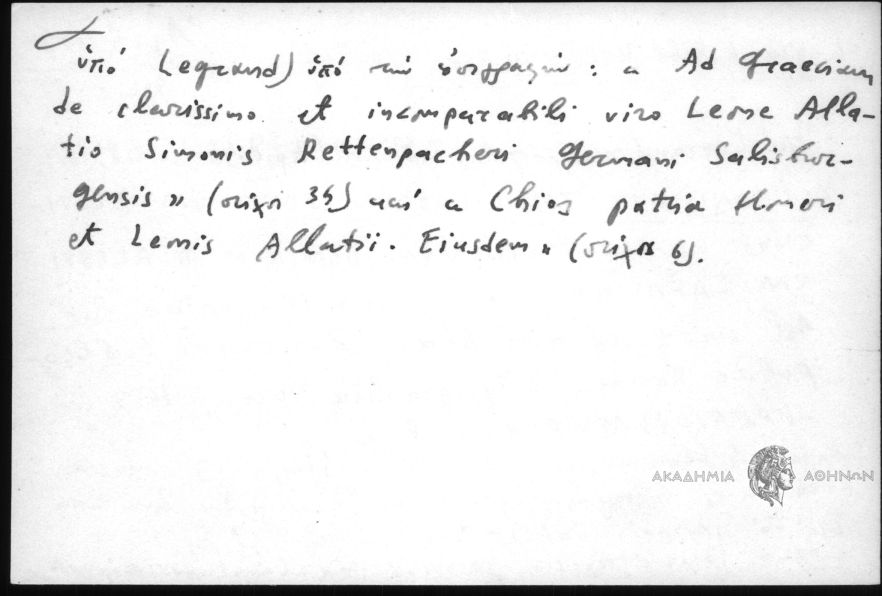 ὑπό Legrand) ὑπό τήν ἐπιγραφήν : « Ad Graeciam
de clarissimo et incomparabili viro Leone Alla-
tio Simonis Rettenpacheri Germani Salisbur-
gensis » (στίχοι 34) καί « Chios patria Homeri
et Leonis Allatii. Eiusdem » (στίχοι 6).
ΑΚΑΔΗΜΙΑ ΑΘΗΝΩΝ